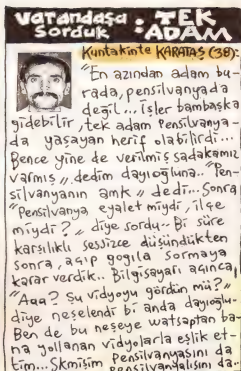 Vatandaşa Sorduk : TEK ADAM
Kuntakinte KARATAŞ (38):
"En azından adam bu-
rada, pensilvanyada
değil... İşler bambaşka
gidebilir, tek adam Pensilvanya-
da yaşayan herif olabilirdi...
Bence yine de verilmiş sadakamız
varmış" dedim dayıoğluna.. "Pen-
silvanyanın amk" dedi... Sonra
"Pensilvanya eyalet miydi, ilçe
miydi?" diye sordu.. Bi süre
karşılıklı sessizce düşündükten
sonra, açıp gogıla sormaya
karar verdik.. Bilgisayarı açınca,
"Aaa? Şu vidyoyu gördün mü?"
diye neşelendi bi anda dayıoğlu..
Ben de bu neşeye watsaptan ba-
na yollanan vidyolarla eşlik et-
tim... Skmişim Pensilvanyasını da
Pensilvanyalısını da..